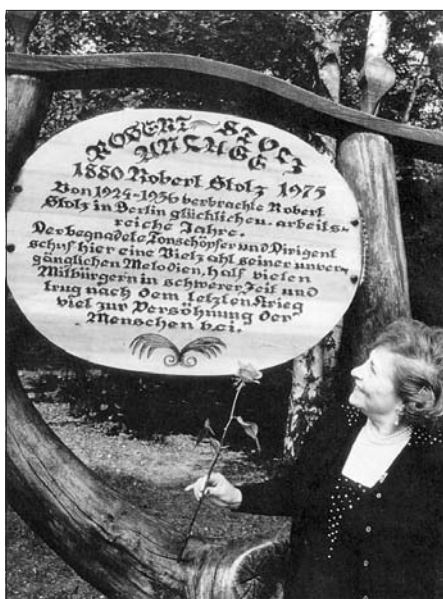 ROBERT STOLZ
ANLAGE
1880 Robert Stolz 1975
Von 1924-1936 verbrachte Robert
Stolz in Berlin glückliche u. arbeits-
reiche Jahre.
Der begnadete Tonschöpfer und Dirigent
schuf hier eine Vielzahl seiner unver-
gänglichen Melodien, half vielen
Mitbürgern in schwerer Zeit und
trug nach dem letzten Krieg
viel zur Versöhnung der
Menschen bei.